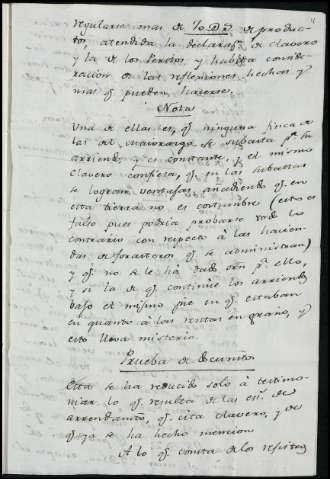 regularse mas de 70 D r.s de produc-
tos, atendida la declaraz.n de Clavero
y la de los Peritos y habida conside-
racion de las reflexiones hechas y
mas q.e pueden hacerse.
Nota
Una de ellas es, q.e ninguna finca de
las del Mayorazgo se subasta p.a su
arriendo, y es constante, y el mismo
Clavero confiesa, q.e en las subastas
se logran ventajas, añadiendo q.e en
esta tierra no es costumbre (esto es
falso pues podria probarse todo lo
contrario con respecto à las hacien-
das de forasteros q.e se administran)
y q.e no se le ha dado orn p.a ello,
y si la de q.e continue los arriendos
bajo el mismo pie en q.e estaban
en quanto à las rentas en grano, y
esto lleva misterio.
Prueba de Docum.tos
Esta se ha reducido solo à testimo-
niar lo q.e resulta de las es.s de
arrendam.to q.e cita Clavero, y de
q.e ya se ha hecho mencion
A lo q.e consta de los respectos